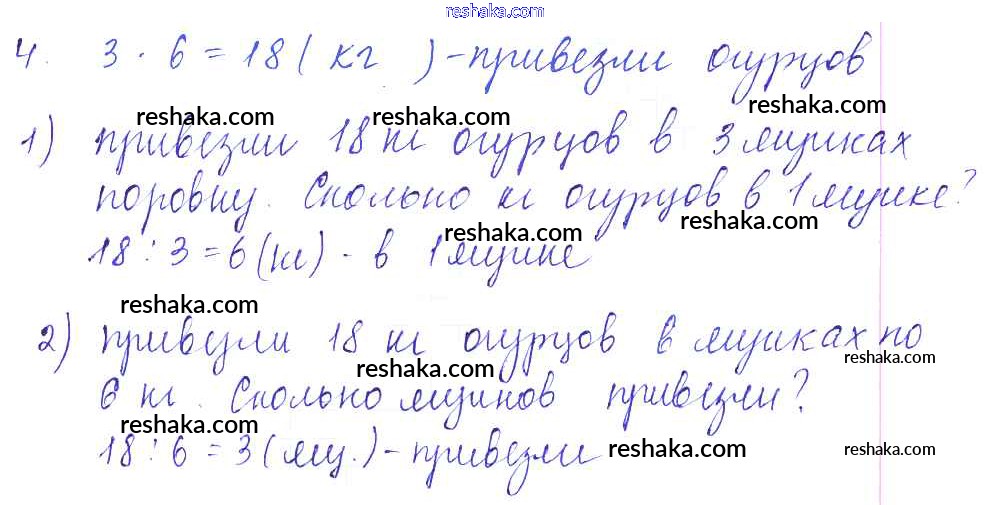 reshaka.com
4. 3 · 6 = 18 ( кг ) - привезли огурцов
reshaka.com reshaka.com reshaka.com
1) привезли 18 кг огурцов в 3 ящиках
поровну. Сколько кг огурцов в 1 ящике?
reshaka.com reshaka.com
18 : 3 = 6 (кг) - в 1 ящике
reshaka.com reshaka.com
2) привезли 18 кг огурцов в ящиках по
reshaka.com reshaka.com
6 кг. Сколько ящиков привезли?
reshaka.com
18 : 6 = 3 (ящ.) - привезли
reshaka.com reshaka.com